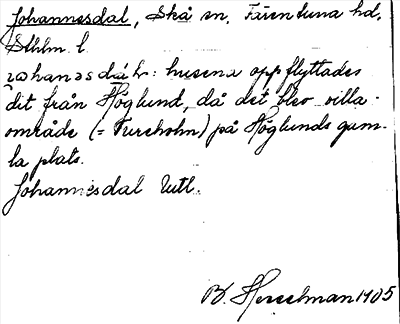 Johannesdal, Skå sn. Färentuna hd,
Sthlm l.
husena uppflyttades
dit från Höglund, då det blev villa-
område (= Tureholm) på Höglunds gam-
la plats.
Johannesdal Utl.
B. Hesselman 1905